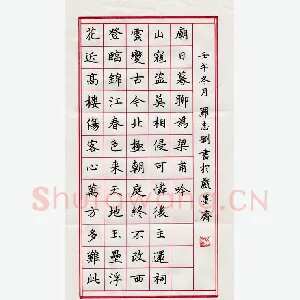 花近高樓傷客心萬方多難此
登臨錦江春色來天地玉壘浮
雲變古今北極朝廷終不改西
山寇盜莫相侵可憐後主還祠
廟日暮聊為梁甫吟
壬午冬月 志 書於 墨齋